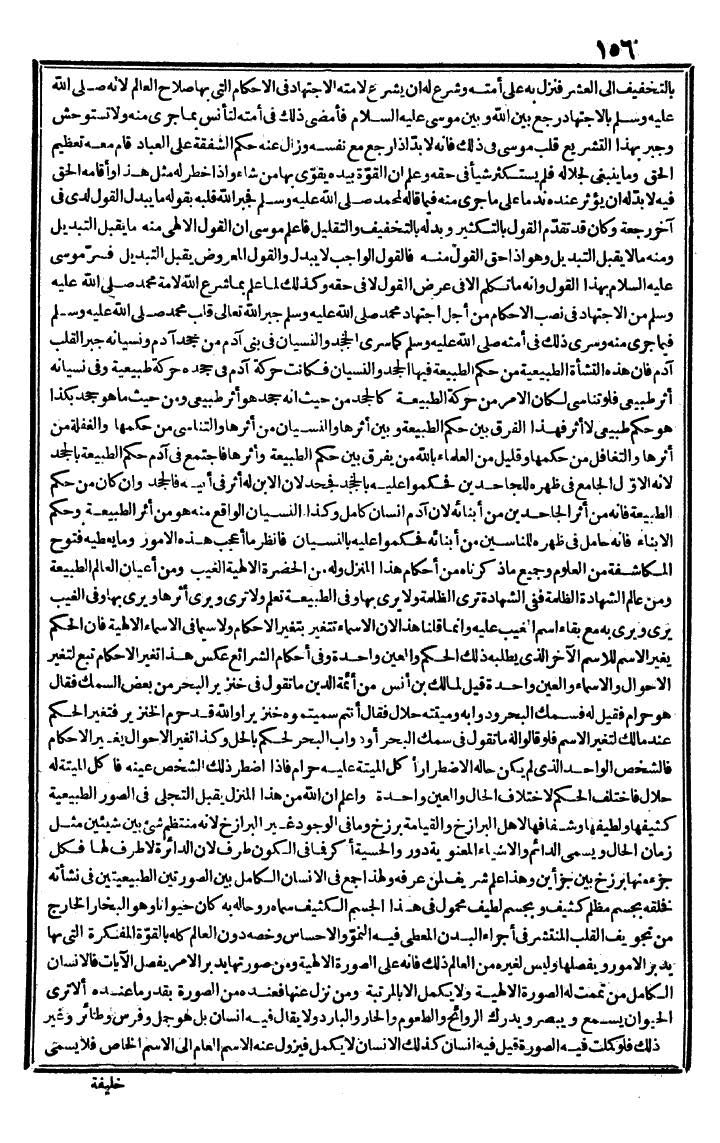 ١٥٦
بالتخفيف الى العشر فنزل به على أمته وشرع له ان يشرع لامته الاجتهاد فى الاحكام التى بها صلاح العالم لانه صلى الله
عليه وسلم بالاجتهاد رجع بين الله وبين موسى عليه السلام فأمضى ذلك فى أمته لتأنس بما جرى منه ولا تستوحش
وجبر بهذا التشريع قلب موسى فى ذلك فانه لا بد اذا رجع مع نفسه وزال عنه حكم الشفقة على العباد قام معه تعظيم
الحق وما ينبغى لجلاله فلم يستكثر شيأ فى حقه وعلم ان القوة بيده يقوى بها من شاء واذا خطر له مثل هذا وأقامه الحق
فيه لا بد له ان يؤثر عنده ندما على ما جرى منه فيما قاله لمحمد صلى الله عليه وسلم فجبر الله قلبه بقوله ما يبدل القول لدى فى
آخر رجعة وكان قد تقدم القول بالتكثير وبدله بالتخفيف والتقليل فاعلم موسى ان القول الالهى منه ما يقبل التبديل
ومنه ما لا يقبل التبديل وهو اذا حق القول منه فالقول الواجب لا يبدل والقول المعروض يقبل التبديل فسر موسى
عليه السلام بهذا القول وانه ما تكلم الا فى عرض القول لا فى حقه وكذلك لما علم بما شرع الله لامة محمد صلى الله عليه
وسلم من الاجتهاد فى نصب الاحكام من أجل اجتهاد محمد صلى الله عليه وسلم جبر الله تعالى قلب محمد صلى الله عليه وسلم
فيما جرى منه وسرى ذلك فى أمته صلى الله عليه وسلم كما سرى الجحد والنسيان فى بنى آدم من جحد آدم ونسيانه جبر القلب
آدم فان هذه النشأة الطبيعية من حكم الطبيعة فيها الجحد والنسيان فكانت حركة آدم فى جحده حركة طبيعية وفى نسيانه
أثر طبيعى فلو تناسى لكان الامر من حركة الطبيعة كالجحد من حيث انه جحد هو أثر طبيعى ومن حيث ما هو جحد بكذا
هو حكم طبيعى لا أثر فهذا الفرق بين حكم الطبيعة وبين أثرها والنسيان من أثرها والتناسى من حكمها والغفلة من
أثرها والتغافل من حكمها وقليل من العلماء بالله من يفرق بين حكم الطبيعة وأثرها فاجتمع فى آدم حكم الطبيعة بالجحد
لانه الاول الجامع فى ظهره للجاحدين فحكموا عليه بالجحد فجحد لان الابن له أثر فى أبيه فالجحد وان كان من حكم
الطبيعة فانه من أثر الجاحدين من أبنائه لان آدم انسان كامل وكذا النسيان الواقع منه هو من أثر الطبيعة وحكم
الابناء فانه حامل فى ظهره للناسين من أبنائه فحكموا عليه بالنسيان فانظر ما أعجب هذه الامور وما يعطيه فتوح
المكاشفة من العلوم وجميع ما ذكرناه من أحكام هذا المنزل وله من الحضرة الالهية الغيب ومن أعيان العالم الطبيعة
ومن عالم الشهادة الظلمة ففى الشهادة ترى الظلمة ولا يرى بها وفى الطبيعة تعلم ولا ترى ويرى أثرها ويرى بها وفى الغيب
يرى ويرى به مع بقاء اسم الغيب عليه وانما قلنا هذا لان الاسماء تتغير بتغير الاحكام ولا سيما فى الاسماء الالهية فان الحكم
يغير الاسم للاسم الآخر الذى يطلبه ذلك الحكم والعين واحدة وفى أحكام الشرائع عكس هذا تغير الاحكام تبع لتغير
الاحوال والاسماء والعين واحدة قيل لمالك بن أنس من أئمة الدين ما تقول فى خنزير البحر من بعض السمك فقال
هو حرام فقيل له فسمك البحر ودوابه وميتته حلال فقال أنتم سميتموه خنزيرا والله قد حرم الخنزير فتغير الحكم
عند مالك لتغير الاسم فلو قالوا له ما تقول فى سمك البحر أو دواب البحر لحكم بالحل وكذا تغير الاحوال يغير الاحكام
فالشخص الواحد الذى لم يكن حاله الاضطرار أكل الميتة عليه حرام فاذا اضطر ذلك الشخص عينه فاكل الميتة له
حلال فاختلف الحكم لاختلاف الحال والعين واحدة واعلم ان الله من هذا المنزل يقبل التجلى فى الصور الطبيعية
كثيفها ولطيفها وشفافها لاهل البرازخ والقيامة برزخ وما فى الوجود غير البرازخ لانه منتظم شئ بين شيئين مثل
زمان الحال ويسمى الدائم والاشياء المعنوية دور والحسية أكر فما فى الكون طرف لان الدائرة لا طرف لها فكل
جزء منها برزخ بين جزأين وهذا علم شريف لمن عرفه ولهذا جمع فى الانسان الكامل بين الصورتين الطبيعيتين فى نشأته
فخلقه بجسم مظلم كثيف وبجسم لطيف محمول فى هذا الجسم الكثيف سماه روحا له به كان حيوانا وهو البخار الخارج
من تجويف القلب المنتشر فى أجزاء البدن المعطى فيه النمو والاحساس وخصه دون العالم كله بالقوة المفكرة التى بها
يدبر الامور ويفصلها وليس لغيره من العالم ذلك فانه على الصورة الالهية ومن صورتها يدبر الامر يفصل الآيات فالانسان
الكامل من تممت له الصورة الالهية ولا يكمل الا بالمرتبة ومن نزل عنها فعنده من الصورة بقدر ما عنده ألا ترى
الحيوان يسمع ويبصر ويدرك الروائح والطعوم والحار والبارد ولا يقال فيه انسان بل هو جمل وفرس وطائر وغير
ذلك فلو كملت فيه الصورة قيل فيه انسان كذلك الانسان لا يكمل فيزول عنه الاسم العام الى الاسم الخاص فلا يسمى
خليفة